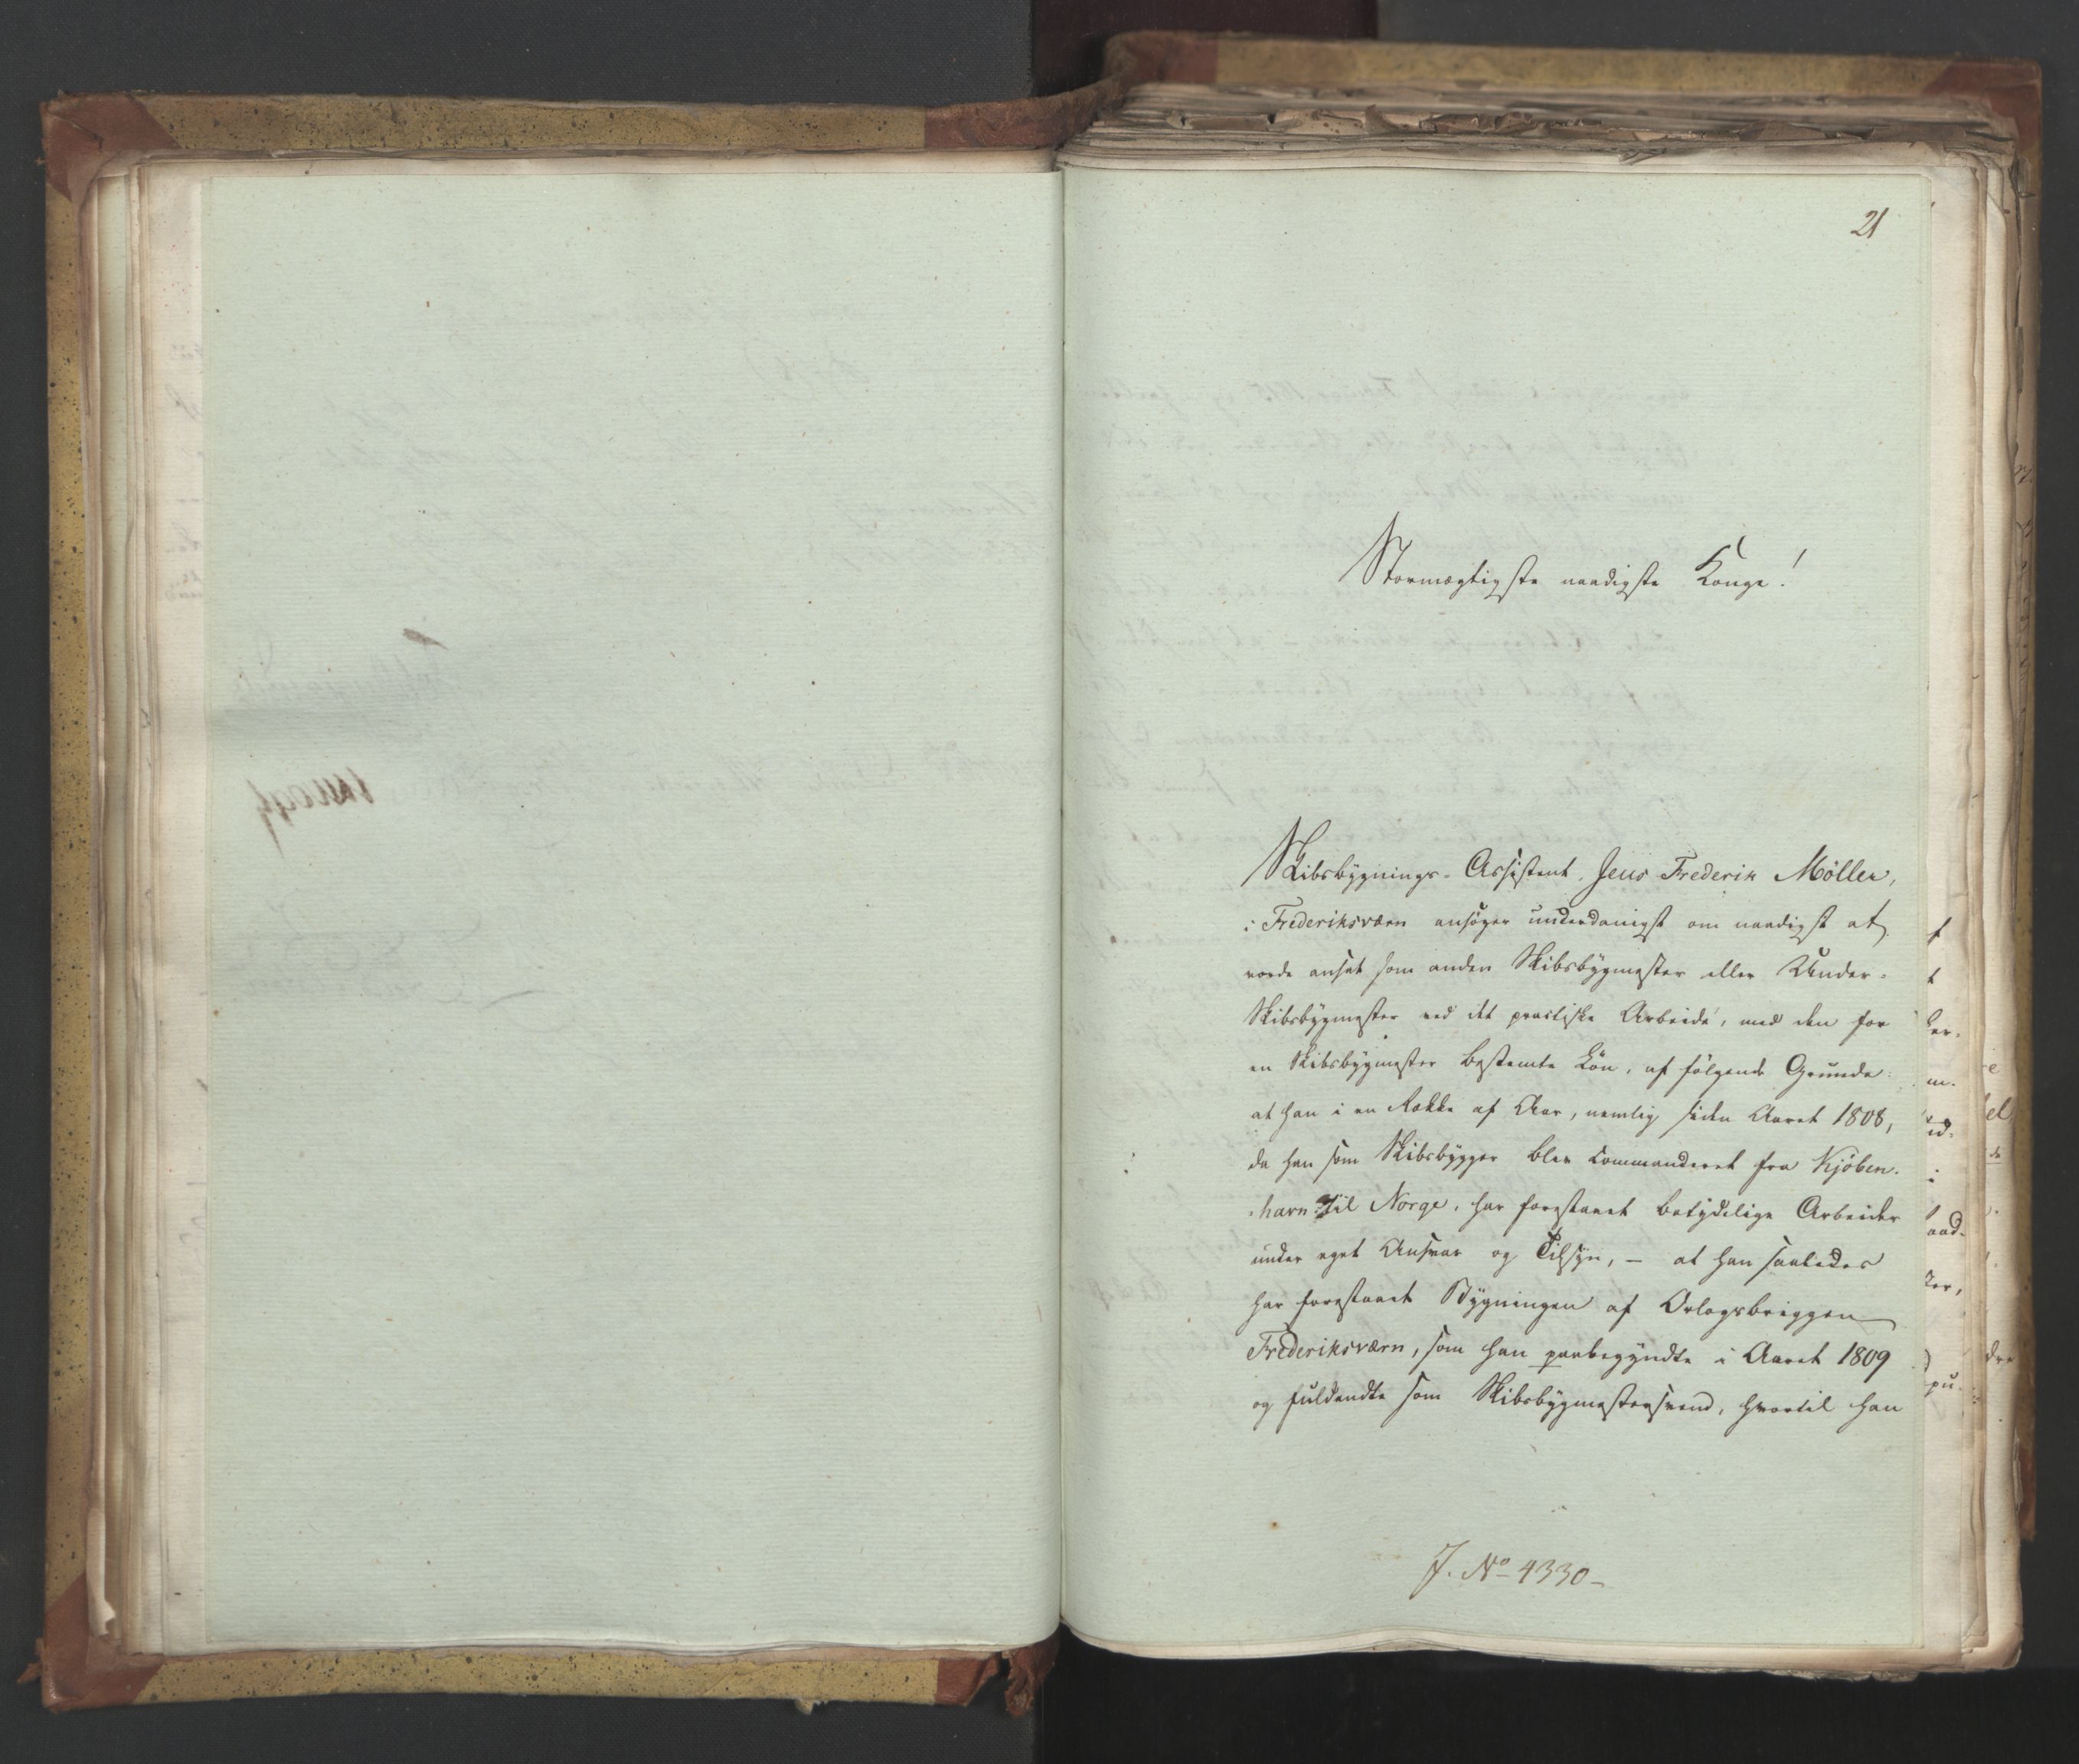 21
Stormægtigste naadigste Konge!
Skibsbygnings-Assistent, Jens Frederik Möller,
i Frederiksværn ansøger underdanigst om naadigst at
vorde ansat som anden Skibsbygmester eller Under-
Skibsbygmester ved det practiske Arbeide, med den for
en Skibsbygmester bestemte Lön, af følgende Grunde:
at han i en Række af Aar, nemlig siden Aaret 1808,
da han som Skibsbygger blev commanderet fra Kjöben-
havn til Norge, har forestaaet betydelige Arbeider
under eget Ansvar og Tilsyn, – at han saaledes
har forestaaet Bygningen af Orlogsbriggen
Frederiksværn, som han paabegyndte i Aaret 1809
og fuldendte som Skibsbygmestersvend, hvortil han
J. No 4330-